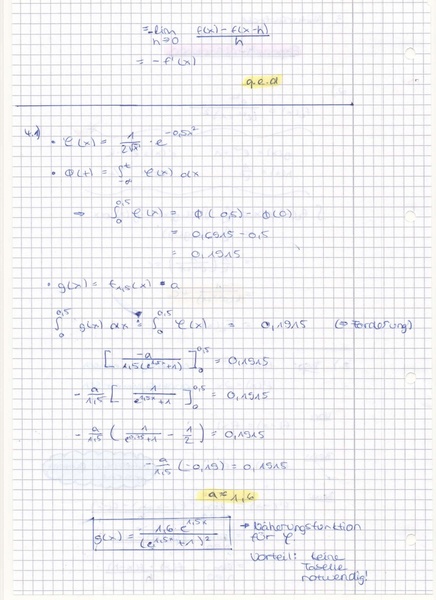 = -lim h→0 (f(x) - f(x-h))/h
= -f'(x)
q.e.d
4.)
• φ(x) = 1/(2√π) · e^(-0,5x²)
• Φ(t) = ∫_{-∞}^{t} φ(x) dx
⇒ ∫_0^{0,5} φ(x) = Φ(0,5) - Φ(0)
= 0,6915 - 0,5
= 0,1915
• g(x) = f_{1,5}(x) • a
∫_0^{0,5} g(x) dx = ∫_0^{0,5} φ(x) = 0,1915 (⇒ Forderung)
[ -a/(1,5(e^{1,5x}+1)) ]_0^{0,5} = 0,1915
- a/1,5 [ 1/(e^{1,5x}+1) ]_0^{0,5} = 0,1915
- a/1,5 ( 1/(e^{0,75}+1) - 1/2 ) = 0,1915
- a/1,5 (-0,19) = 0,1915
a = 1,6
g(x) = 1,6 e^{1,5x}/(e^{1,5x}+1)² → Näherungsfunktion
für φ
Vorteil: keine
Tabelle
notwendig!